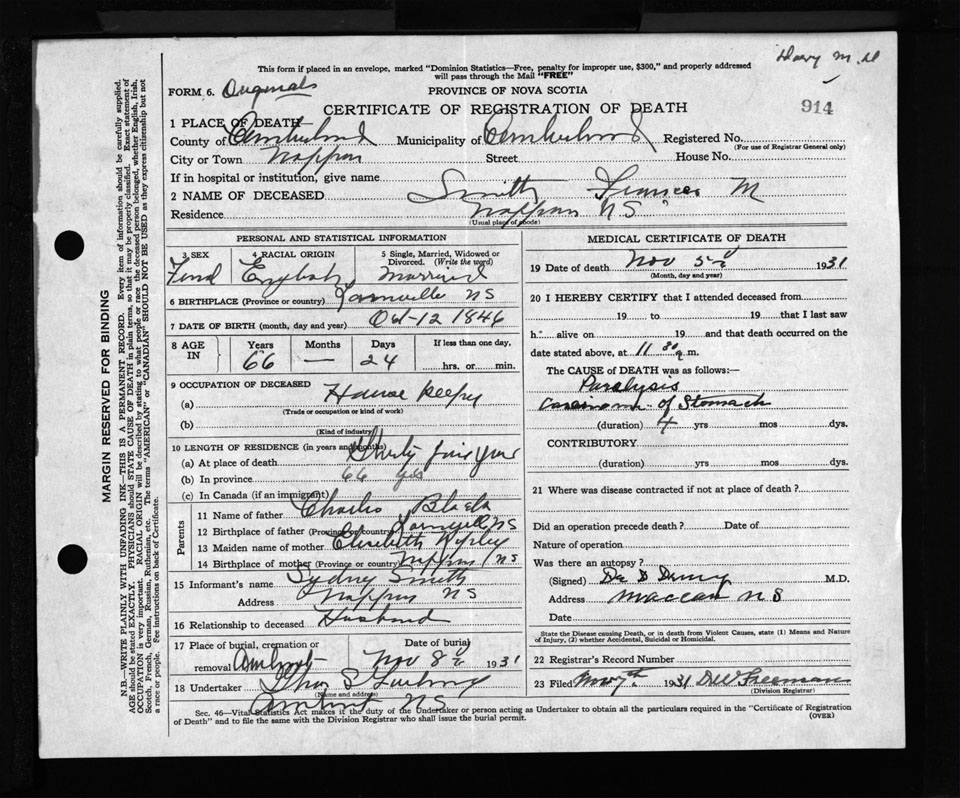 Harry M. H
This form if placed in an envelope, marked "Dominion Statistics—Free, penalty for improper use, $300," and properly addressed
will pass through the Mail "FREE"
FORM 6. Originals
PROVINCE OF NOVA SCOTIA
914
CERTIFICATE OF REGISTRATION OF DEATH
1 PLACE OF DEATH
County of Cumberland Municipality of Cumberland Registered No.
(For use of Registrar General only)
City or Town Nappan Street House No.
If in hospital or institution, give name
2 NAME OF DECEASED Smith Frances M
Residence Nappan NS
(Usual place of abode)
PERSONAL AND STATISTICAL INFORMATION
3 SEX 4 RACIAL ORIGIN 5 Single, Married, Widowed or Divorced. (Write the word)
English Married
6 BIRTHPLACE (Province or country) NS
7 DATE OF BIRTH (month, day and year) Oct-12 1846
8 AGE IN Years Months Days If less than one day,
66 — 24 hrs. or min.
9 OCCUPATION OF DECEASED
(a) House keeper
(Trade or occupation or kind of work)
(b)
(Kind of industry)
10 LENGTH OF RESIDENCE (in years and months)
(a) At place of death Thirty
(b) In province 66 yrs
(c) In Canada (if an immigrant)
Parents
11 Name of father Charles Black
12 Birthplace of father (Province or country) NS
13 Maiden name of mother Elizabeth Ripley
14 Birthplace of mother (Province or country) Nappan NS
15 Informant's name Sydney Smith
Address Nappan NS
16 Relationship to deceased Husband
17 Place of burial, cremation or Date of burial
removal Amherst Nov 8th 1931
18 Undertaker Thos S
(Name and address)
Amherst NS
MEDICAL CERTIFICATE OF DEATH
19 Date of death Nov 5th 1931
(Month, day and year)
20 I HEREBY CERTIFY that I attended deceased from
19 to 19 that I last saw
h alive on 19 and that death occurred on
date stated above, at 11 30 m.
The CAUSE of DEATH was as follows:—
Paralysis
Carcinoma of Stomach
(duration) 4 yrs mos dys.
CONTRIBUTORY
(duration) yrs mos dys.
21 Where was disease contracted if not at place of death?
Did an operation precede death? Date of
Nature of operation
Was there an autopsy?
(Signed) Dr D M.D.
Address Maccan NS
Date
State the Disease causing Death, or in death from Violent Causes, state (1) Means and Nature
of Injury, (2) whether Accidental, Suicidal or Homicidal.
22 Registrar's Record Number
23 Filed Nov 7th 1931 DW Freeman
(Division Registrar)
Sec. 46—Vital Statistics Act makes it the duty of the Undertaker or person acting as Undertaker to obtain all the particulars required in the "Certificate of Registration
of Death" and to file the same with the Division Registrar who shall issue the burial permit.
(OVER)
MARGIN RESERVED FOR BINDING
N.B.—WRITE PLAINLY WITH UNFADING INK—THIS IS A PERMANENT RECORD. Every item of information should be carefully supplied.
AGE should be stated EXACTLY. PHYSICIANS should STATE CAUSE OF DEATH in plain terms, so that it may be properly classified. Exact statement of
OCCUPATION is very important. RACIAL ORIGIN will be described by stating to what people or race the deceased person belonged, whether English, Irish,
Scotch, French, German, Russian, Ruthenian, etc. The terms "AMERICAN" or "CANADIAN" SHOULD NOT BE USED as they express citizenship but not
a race or people. See instructions on back of Certificate.